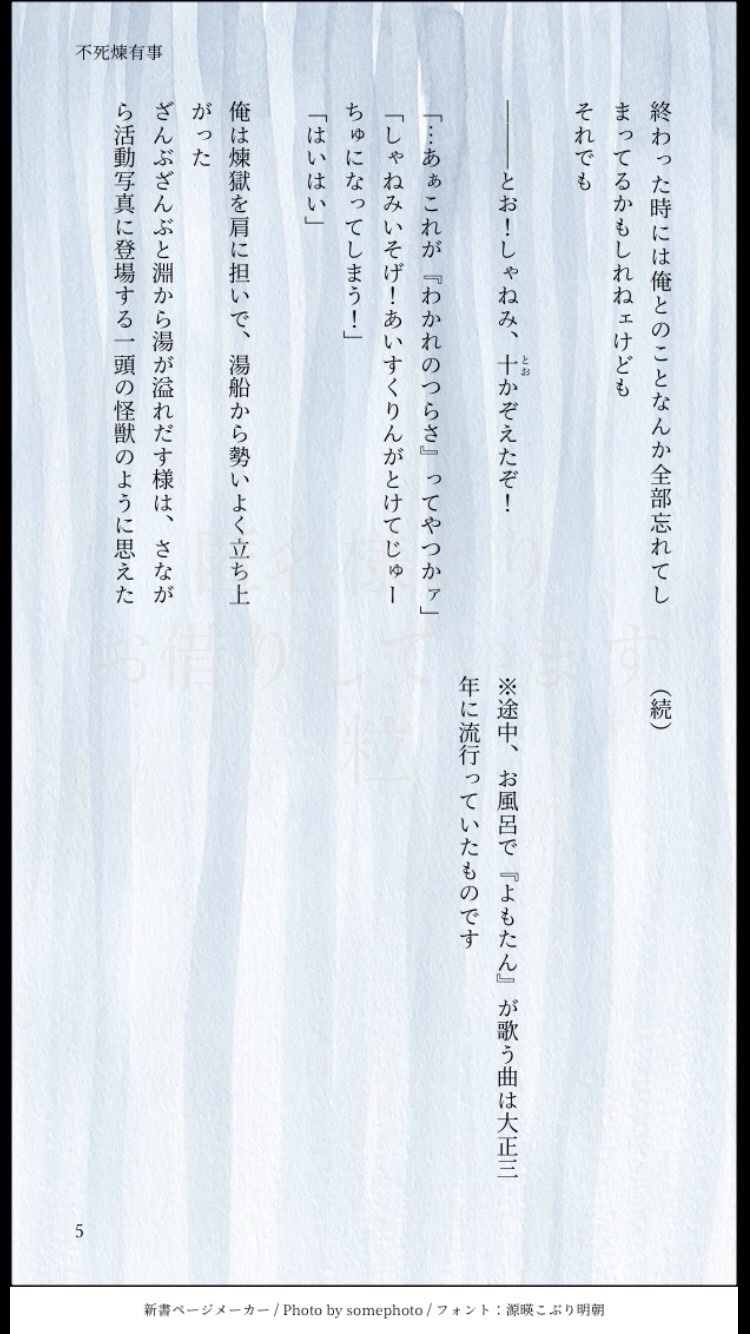 不死煉有事
終わった時には俺とのことなんか全部忘れてし
まってるかもしれねェけども
それでも
―――とお！しゃねみ、十かぞえたぞ！
とお
「…あぁこれが『わかれのつらさ』ってやつかァ」
「しゃねみいそげ！あいすくりんがとけてじゅー
ちゅになってしまう！」
「はいはい」
俺は煉獄を肩に担いで、湯船から勢いよく立ち上
がった
ざんぶざんぶと淵から湯が溢れだす様は、さなが
ら活動写真に登場する一頭の怪獣のように思えた
（続）
※途中、お風呂で『よもたん』が歌う曲は大正三
年に流行っていたものです
匿名様より
お借りしています
粒
5
新書ページメーカー / Photo by somephoto / フォント：源暎こぶり明朝